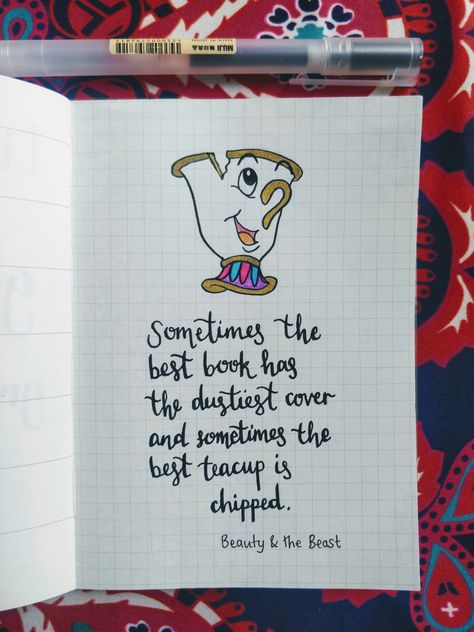 MUJI
Sometimes the
best book has
the dustiest cover
and sometimes the
best teacup is
chipped.
Beauty & the Beast